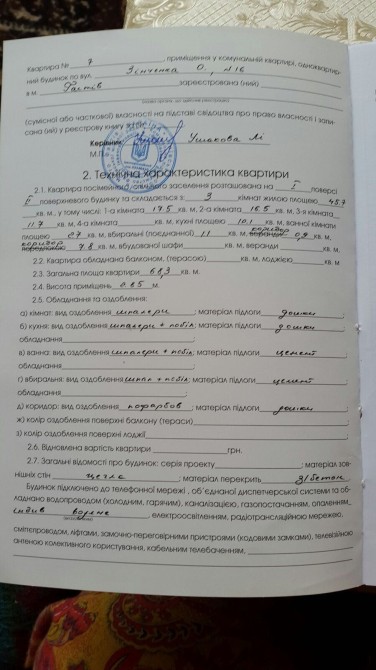 Квартира № 7, приміщення у комунальній квартирі, одноквартир-
ний будинок по вул. Зінченка О., №16
в м. Фастів зареєстрована (ний)
(сумісної або часткової) власності на підставі свідоцтва про право власності і запи-
сана (ий) у реєстрову книгу
Керівник: Ушакова Лі
М.П.
2. Технічна характеристика квартири
2.1. Квартира посімейного, спільного заселення розташована на I поверсі
II поверхневого будинку та складається з: 3 кімнат жилою площею 45.7
кв. м., у тому числі: 1-а кімната 17.5 кв. м, 2-а кімната 16.5 кв. м, 3-я кімната
11.7 кв. м, 4-а кімната кв. м, кухні площею 10.1 кв. м, ванної кімнати
площею 0.7 кв. м, вбиральні (поєднаної) 1.1 кв. м, коридор 0,9 кв. м,
коридор 7.8 кв. м, вбудованої шафи кв. м, веранди кв. м.
2.2. Квартира обладнана балконом, (терасою) кв. м, лоджією кв. м
2.3. Загальна площа квартири 68,3 кв. м.
2.4. Висота приміщень м.
2.5. Обладнання та оздоблення:
а) кімнат: вид оздоблення шпалери; матеріал підлоги дошки;
б) кухні: вид оздоблення шпалери + побіл; матеріал підлоги дошки;
обладнання
в) ванна: вид оздоблення шпалери + побіл; матеріал підлоги цемент
обладнання
г) вбиральня: вид оздоблення шпал + побіл; матеріал підлоги цемент
обладнання
д) коридор: вид оздоблення пофарбов; матеріал підлоги дошки;
ж) колір оздоблення поверхні балкону (тераси)
з) колір оздоблення поверхні лоджії
2.6. Відновлена вартість квартири грн.
2.7. Загальні відомості про будинок: серія проекту; матеріал зов-
нішніх стін цегла; матеріал перекрить з/бетон
Будинок підключено до телефонної мережі, об'єднаної диспетчерської системи та об-
ладнано водопроводом (холодним, гарячим), каналізацією, газопостачанням, опаленням,
індив водяне, електроосвітленням, радіотрансляційною мережею,
сміттєпроводом, ліфтами, замочно-переговірними пристроями (кодовими замками), телевізійною
антеною колективного користування, кабельним телебаченням,